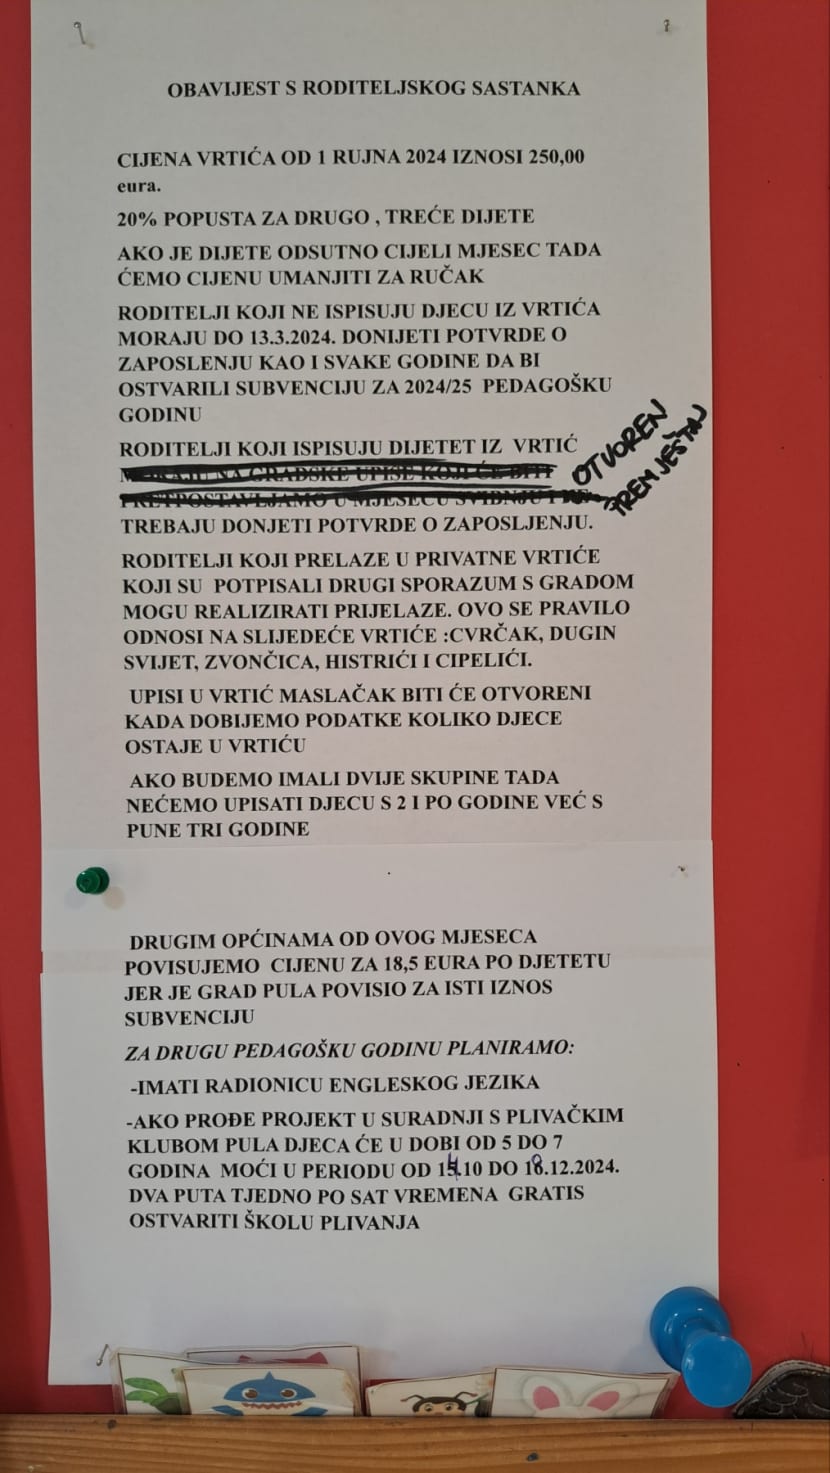 OBAVIJEST S RODITELJSKOG SASTANKA
CIJENA VRTIĆA OD 1 RUJNA 2024 IZNOSI 250,00
eura.
20% POPUSTA ZA DRUGO , TREĆE DIJETE
AKO JE DIJETE ODSUTNO CIJELI MJESEC TADA
ĆEMO CIJENU UMANJITI ZA RUČAK
RODITELJI KOJI NE ISPISUJU DJECU IZ VRTIĆA
MORAJU DO 13.3.2024. DONIJETI POTVRDE O
ZAPOSLENJU KAO I SVAKE GODINE DA BI
OSTVARILI SUBVENCIJU ZA 2024/25 PEDAGOŠKU
GODINU
RODITELJI KOJI ISPISUJU DIJETET IZ VRTIĆ
NA GRADSKE UPISE KOJI ĆE BITI
PRETPOSTAVLJAMO U MJESECU SVIBNJU I NE
OTVOREN
PREMJEŠTAJ
TREBAJU DONJETI POTVRDE O ZAPOSLJENJU.
RODITELJI KOJI PRELAZE U PRIVATNE VRTIĆE
KOJI SU POTPISALI DRUGI SPORAZUM S GRADOM
MOGU REALIZIRATI PRIJELAZE. OVO SE PRAVILO
ODNOSI NA SLIJEDEĆE VRTIĆE :CVRČAK, DUGIN
SVIJET, ZVONČICA, HISTRIĆI I CIPELIĆI.
UPISI U VRTIĆ MASLAČAK BITI ĆE OTVORENI
KADA DOBIJEMO PODATKE KOLIKO DJECE
OSTAJE U VRTIĆU
AKO BUDEMO IMALI DVIJE SKUPINE TADA
NEĆEMO UPISATI DJECU S 2 I PO GODINE VEĆ S
PUNE TRI GODINE
DRUGIM OPĆINAMA OD OVOG MJESECA
POVISUJEMO CIJENU ZA 18,5 EURA PO DJETETU
JER JE GRAD PULA POVISIO ZA ISTI IZNOS
SUBVENCIJU
ZA DRUGU PEDAGOŠKU GODINU PLANIRAMO:
-IMATI RADIONICU ENGLESKOG JEZIKA
-AKO PROĐE PROJEKT U SURADNJI S PLIVAČKIM
KLUBOM PULA DJECA ĆE U DOBI OD 5 DO 7
GODINA MOĆI U PERIODU OD 14.10 DO 18.12.2024.
DVA PUTA TJEDNO PO SAT VREMENA GRATIS
OSTVARITI ŠKOLU PLIVANJA